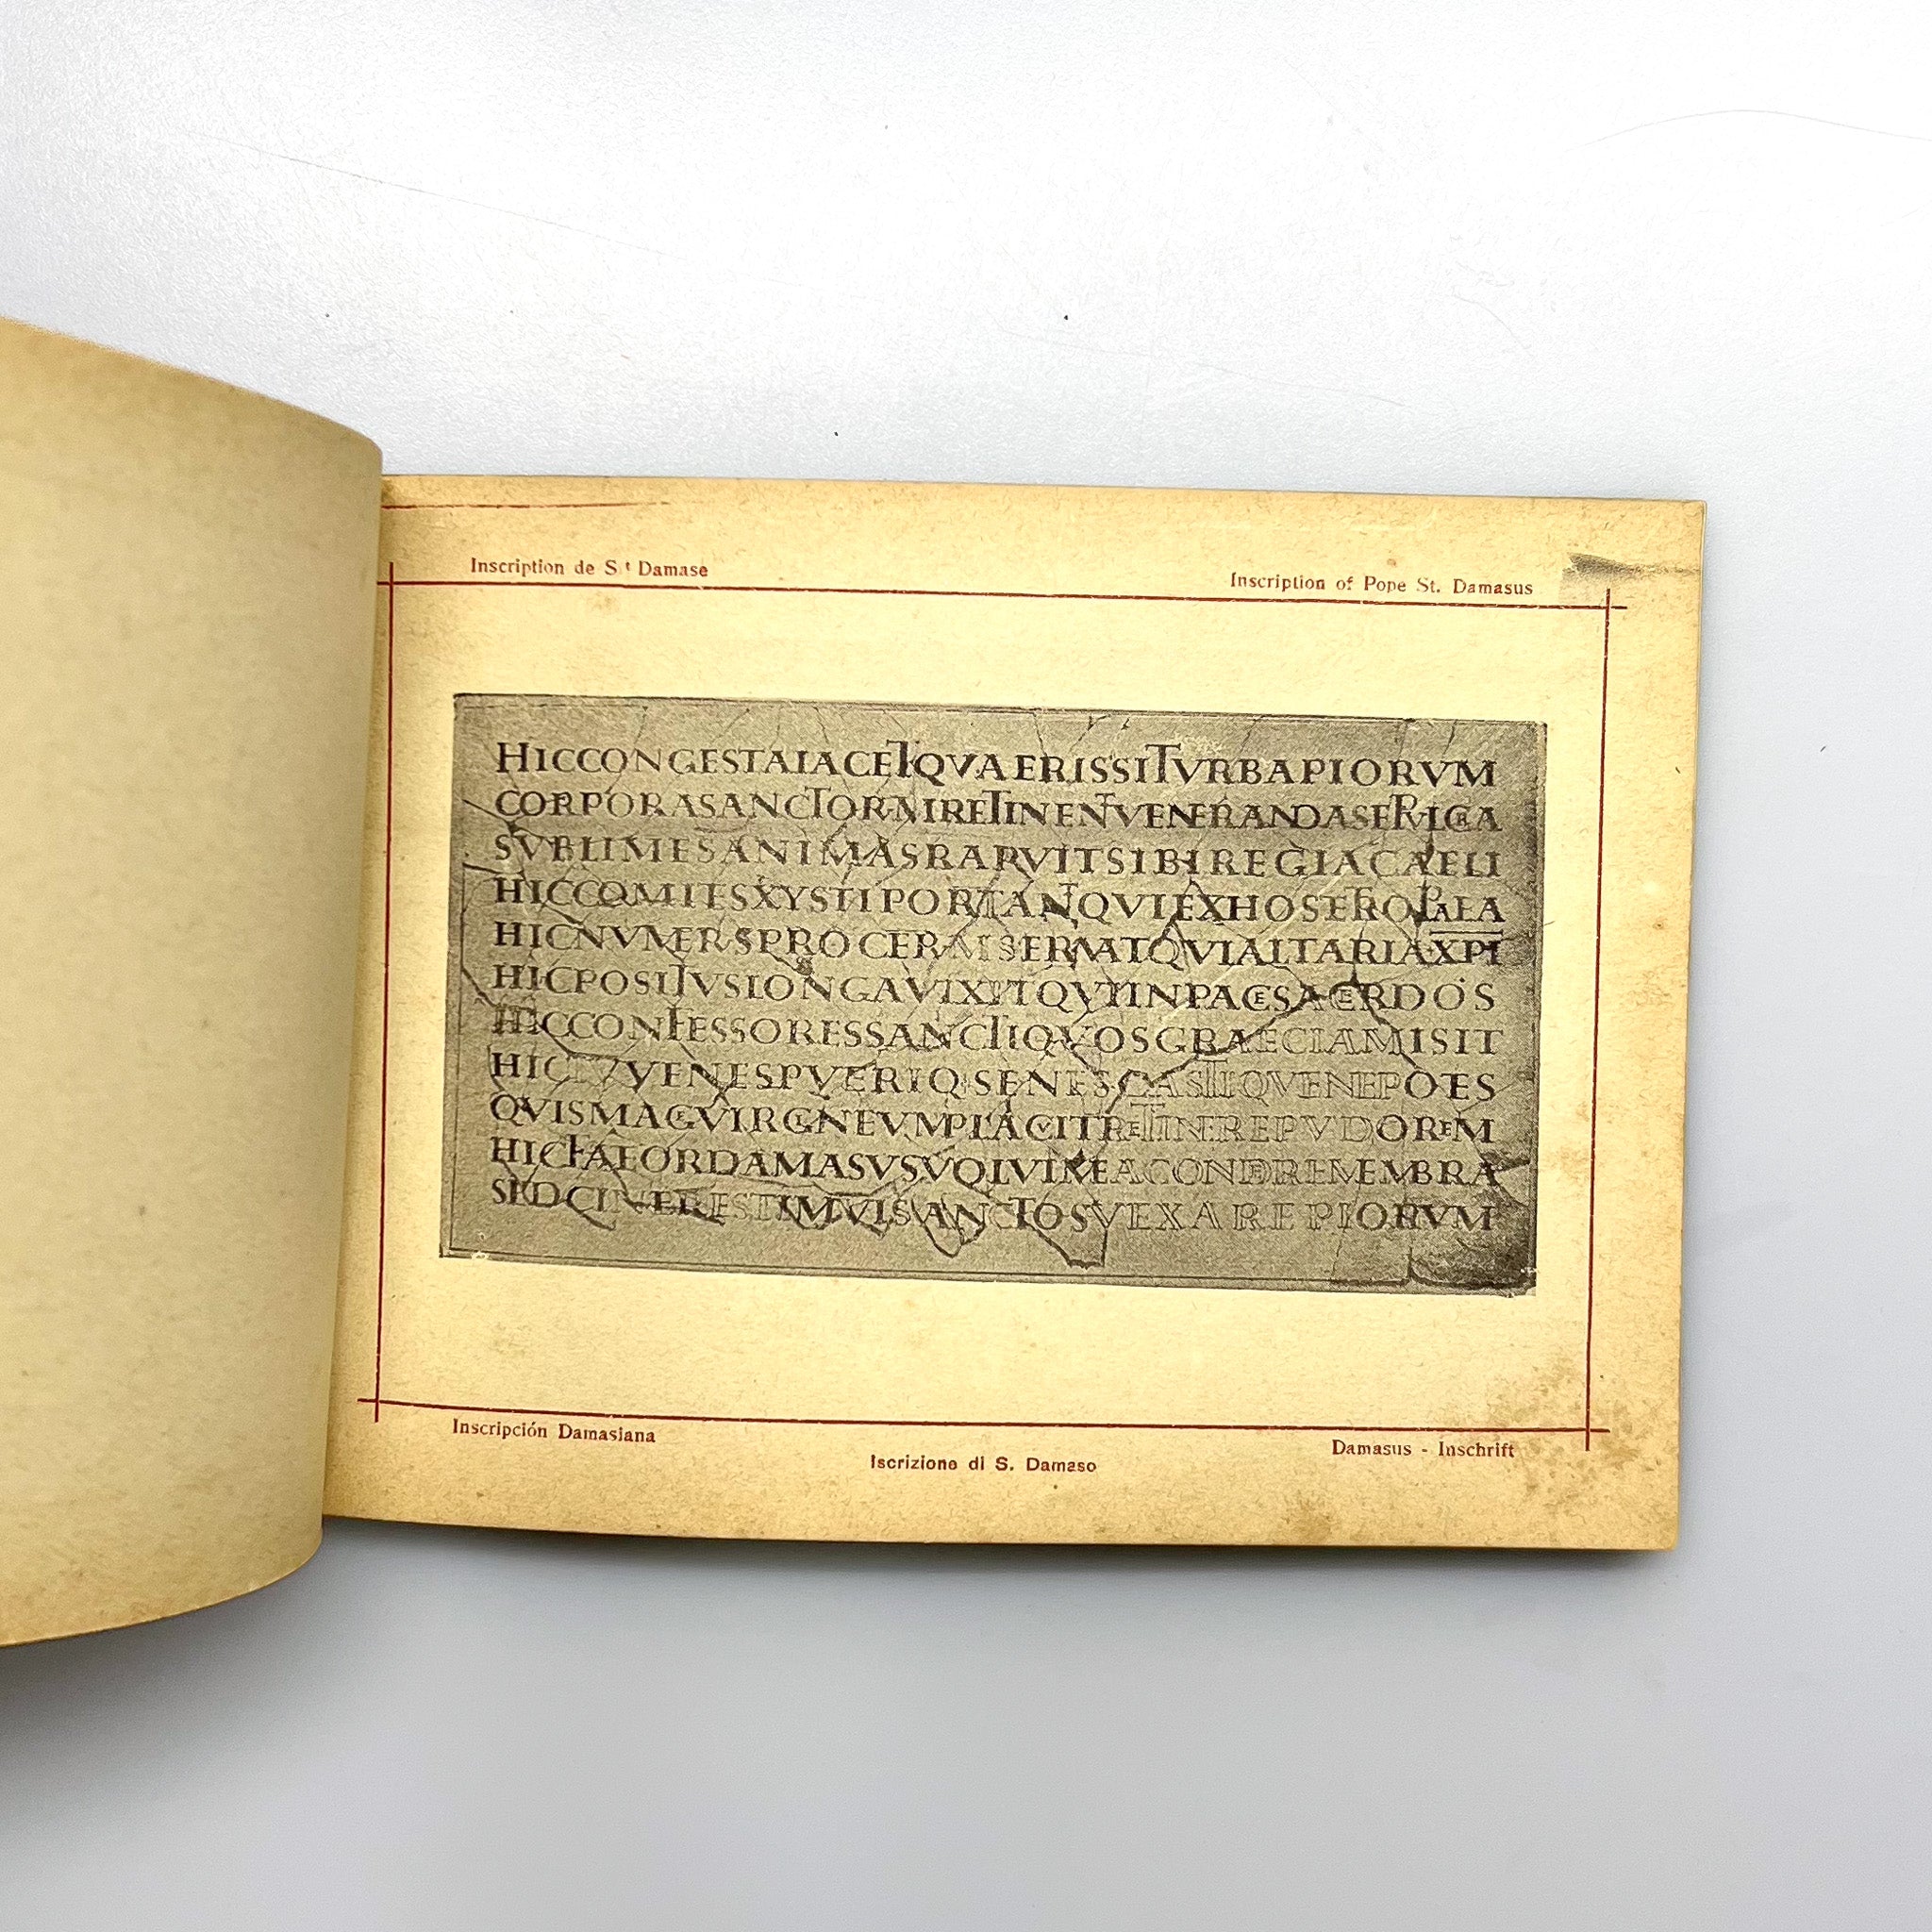 Inscription de St Damase
Inscription of Pope St. Damasus
HICCONGESTAIACETQVAERISSITVRBAPIORVM
CORPORASANCTORVMRETINENTVENERANDASEPVLCRA
SVBLIMESANIMASRAPVITSIBIREGIACAELI
HICCOMITESXYSTIPORTANTQVIEXHOSTETROPAEA
HICNVMERVSPROCERVMSERVATQVIALTARIAXPI
HICPOSITVSLONGAVIXITQVIINPACESACERDOS
HICCONFESSORESSANCTIQVOSGRAECIAMISIT
HICIVVENESPVERIQSENESCASTIQVENEPOTES
QVISMAGEVIRGINEVMPLACVITRETINEREPVDOREM
HICFATEORDAMASVSVOLVIMEACONDEREMEMBRA
SEDCINERESTIMVISANCTOSVEXAREPIORVM
Inscripción Damasiana
Iscrizione di S. Damaso
Damasus - Inschrift